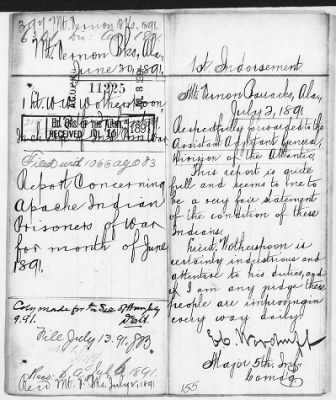 Mt. Vernon Bks, Ala,
June 30, 1891.
11225
1st Lt. W. W. Wotherspoon
RECEIVED JUL 10 1891
Filed with 1066 ago 83
Report Concerning
Apache Indian
Prisoners of War
for month of June
1891.
Copy made for the Sec of
9.91.
File July 13. 91.
Rec'd Mt. V. Bks. July 1891.
1st Indorsement
Mt. Vernon Barracks, Ala,
July 2, 1891
Respectfully forwarded to the
Assistant Adjutant General,
Division of the Atlantic
This report is quite
full and seems to me to be
a very fair statement
of the condition of these
Indians.
Lieut. Wotherspoon is
certainly industrious and
attentive to his duties, and
if I am any judge these
people are improving in
every way daily.
Major 5th. Inf
Comdg
155